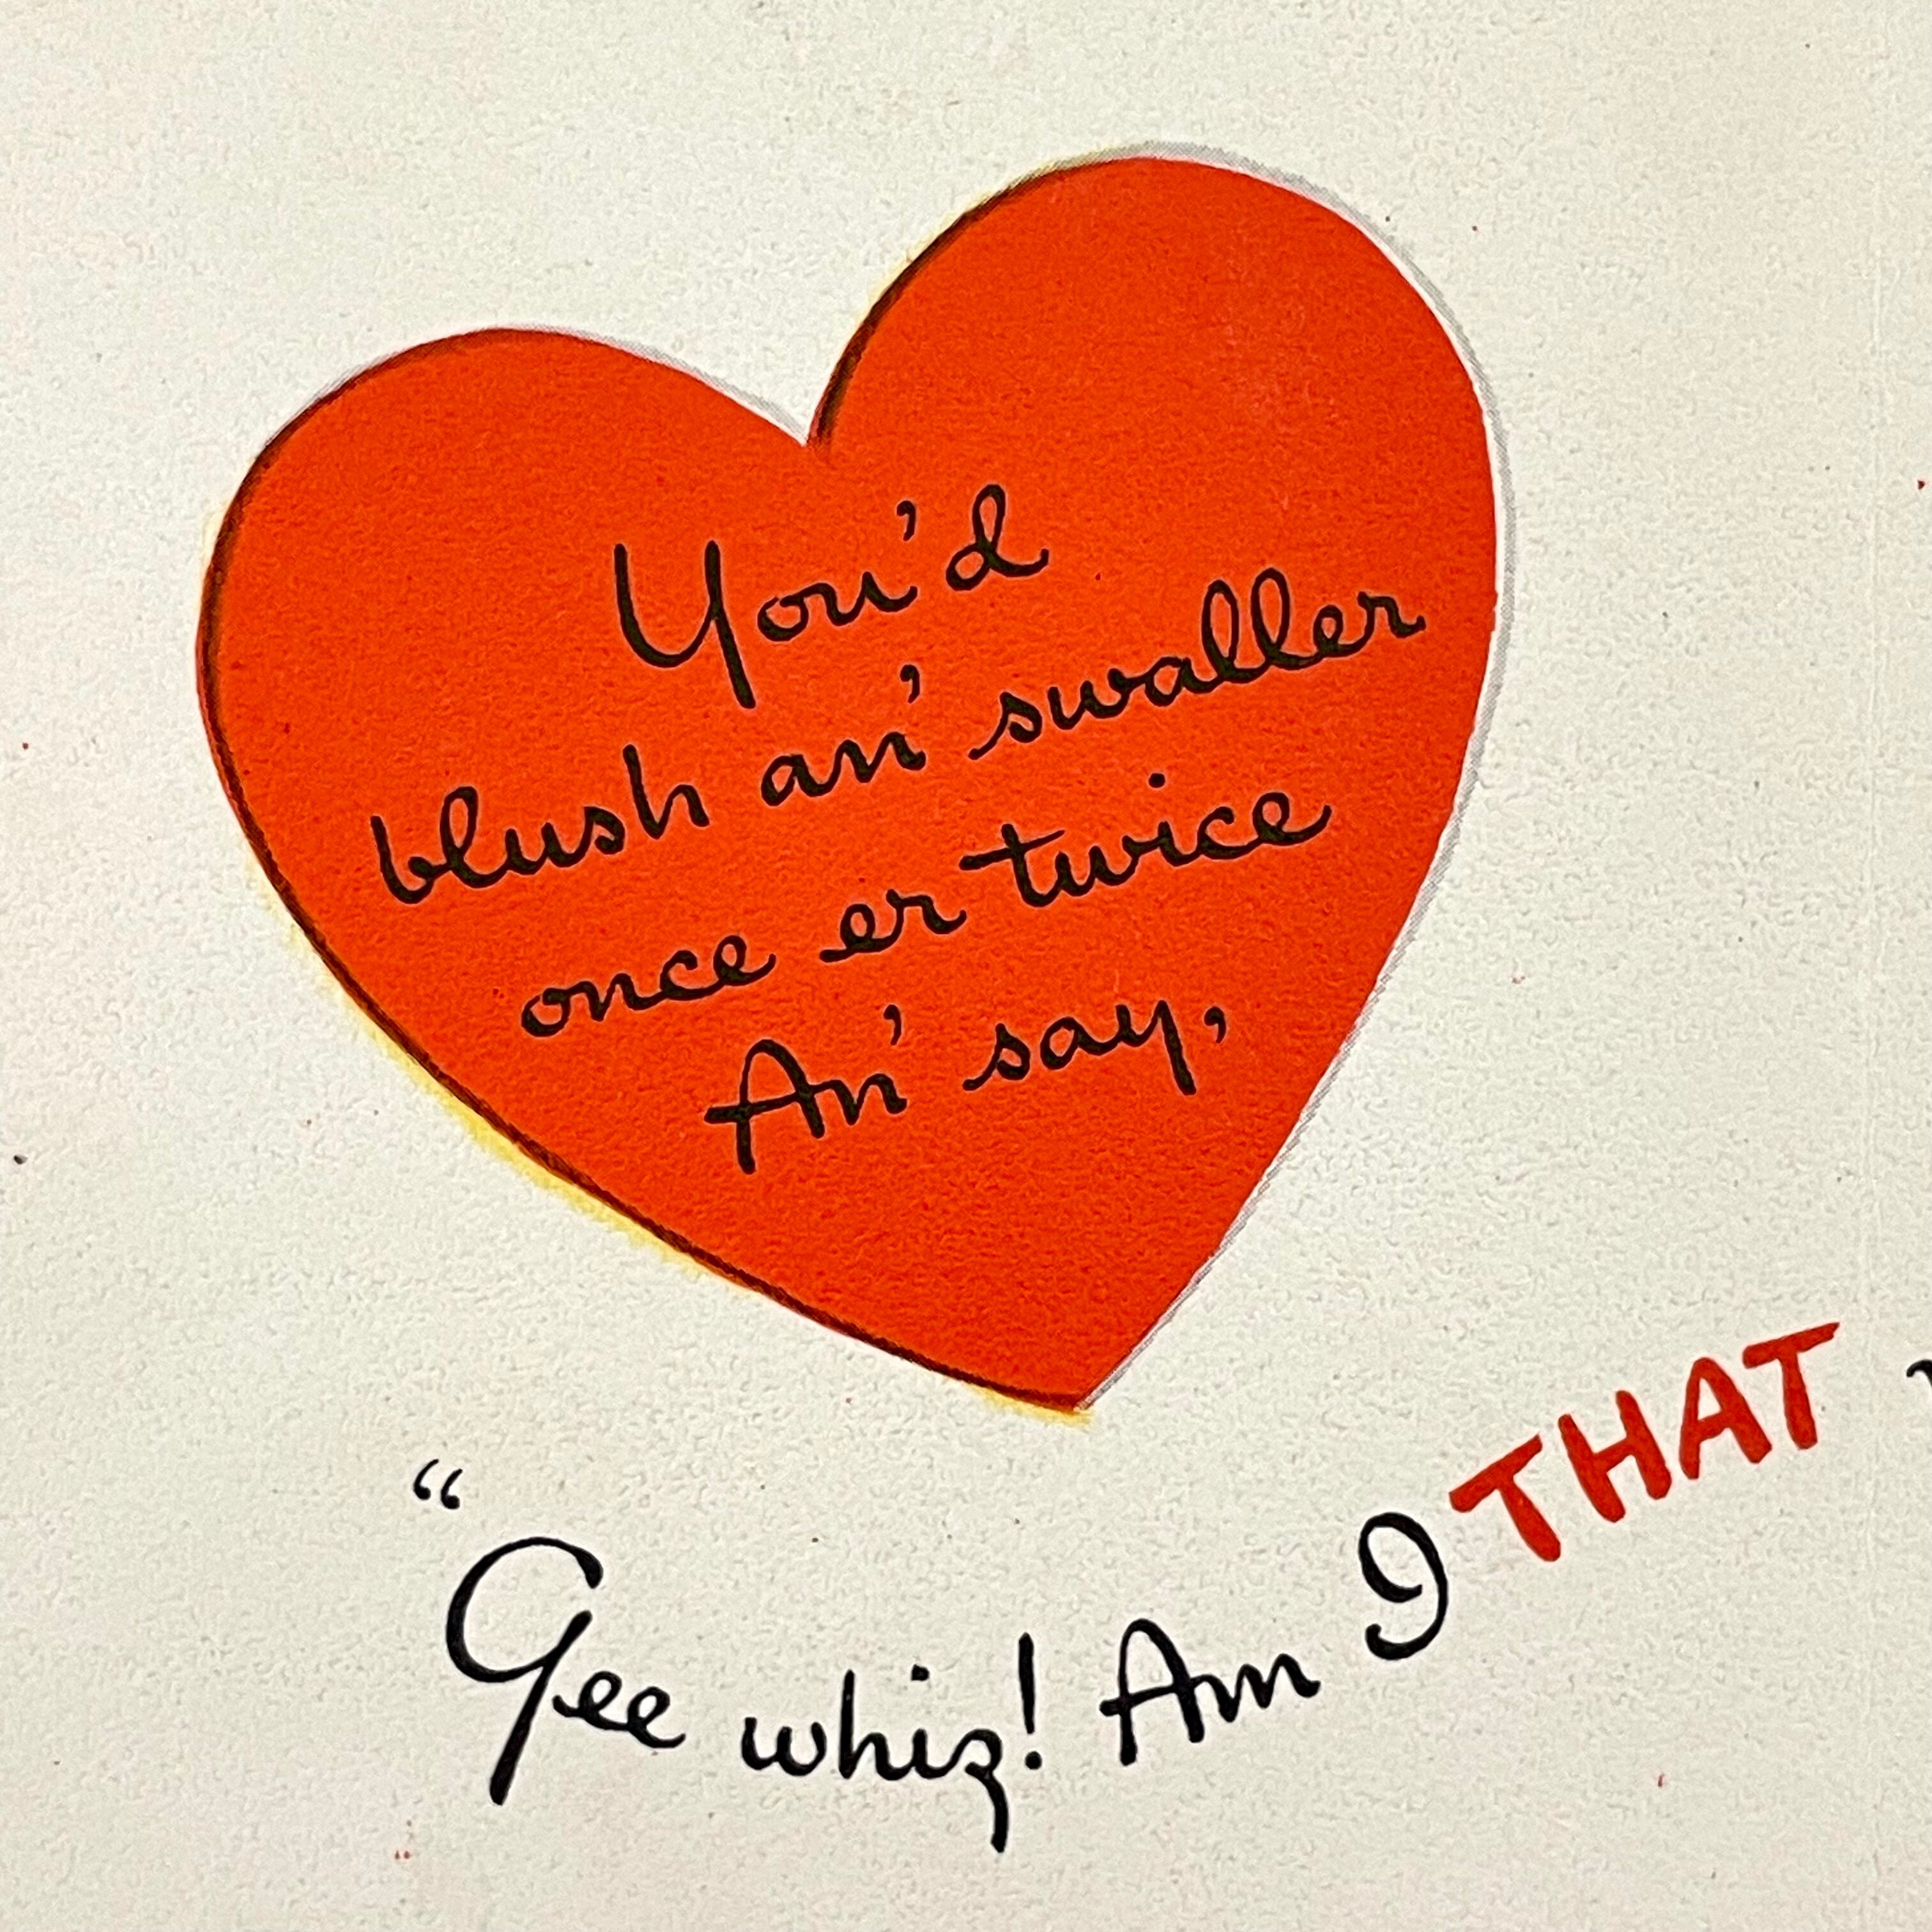 You'd
blush an' swaller
once er twice
An' say,
“Gee whiz! Am I THAT